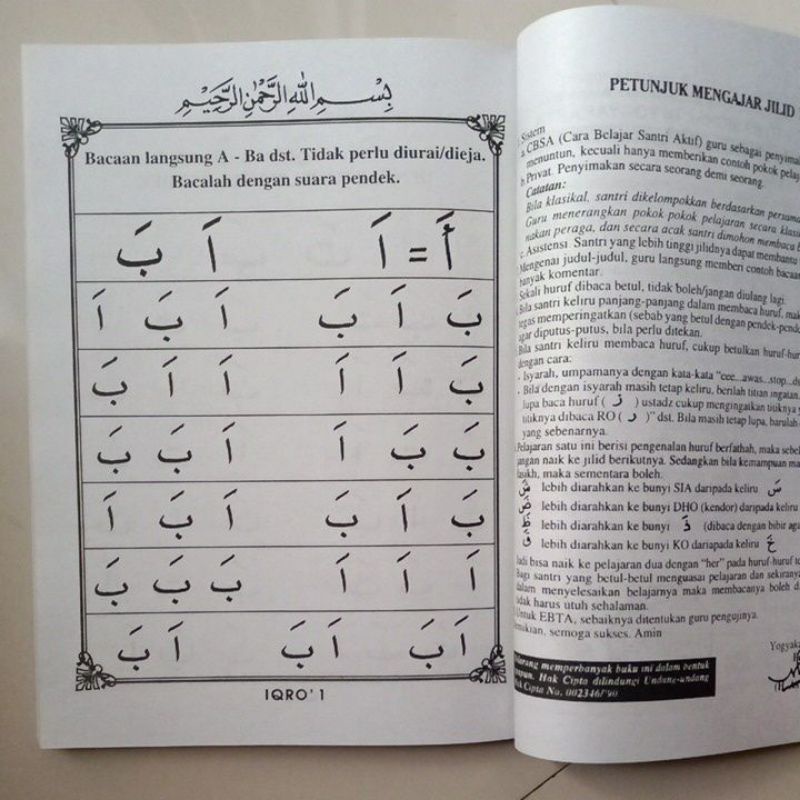 بِسْمِ اللهِ الرَّحْمٰنِ الرَّحِيْمِ
Bacaan langsung A - Ba dst. Tidak perlu diurai/dieja.
Bacalah dengan suara pendek.
أَ = اَ اَ بَ
بَ اَ بَ اَ بَ اَ
بَ اَ اَ اَ اَ بَ
بَ بَ اَ اَ بَ بَ
بَ اَ بَ اَ بَ اَ
اَ اَ اَ بَ بَ بَ
اَ بَ اَ بَ اَ بَ
IQRO' 1
PETUNJUK MENGAJAR JILID
Sistem
a. CBSA (Cara Belajar Santri Aktif) guru sebagai
menuntun, kecuali hanya memberikan contoh pokok
b. Privat. Penyimakan secara seorang demi seorang.
Catatan:
Bila klasikal, santri dikelompokkan berdasarkan
Guru menerangkan pokok pokok pelajaran secara
peraga, dan secara acak santri dimohon membaca
c. Asistensi. Santri yang lebih tinggi jilidnya dapat membantu
Mengenai judul-judul, guru langsung memberi contoh
banyak komentar.
Sekali huruf dibaca betul, tidak boleh/jangan diulang lagi.
Bila santri keliru panjang-panjang dalam membaca huruf,
tegas memperingatkan (sebab yang betul dengan
agar diputus-putus, bila perlu ditekan.
Bila santri keliru membaca huruf, cukup betulkan
dengan cara:
- Isyarah, umpamanya dengan kata-kata "eee...awas...stop
- Bila dengan isyarah masih tetap keliru, berilah titian
lupa baca huruf ( ز ) ustadz cukup mengingatkan titiknya
titiknya dibaca RO ( ر )" dst. Bila masih tetap lupa, barulah
yang sebenarnya.
Pelajaran satu ini berisi pengenalan huruf berfathah, maka
jangan naik ke jilid berikutnya. Sedangkan bila kemampuan
maka sementara boleh.
شَ lebih diarahkan ke bunyi SIA daripada keliru سَ
ضَ lebih diarahkan ke bunyi DHO (kendor) daripada keliru
ظَ lebih diarahkan ke bunyi (dibaca dengan bibir
قَ lebih diarahkan ke bunyi KO dariapada keliru خَ
Jadi bisa naik ke pelajaran dua dengan "her" pada huruf-huruf
Bagi santri yang betul-betul menguasai pelajaran dan
dalam menyelesaikan belajarnya maka membacanya boleh
tidak harus utuh sehalaman.
Untuk EBTA, sebaiknya ditentukan guru pengujinya.
semoga sukses. Amin
memperbanyak buku ini dalam bentuk
Hak Cipta dilindungi Undang-undang
Cipta No.